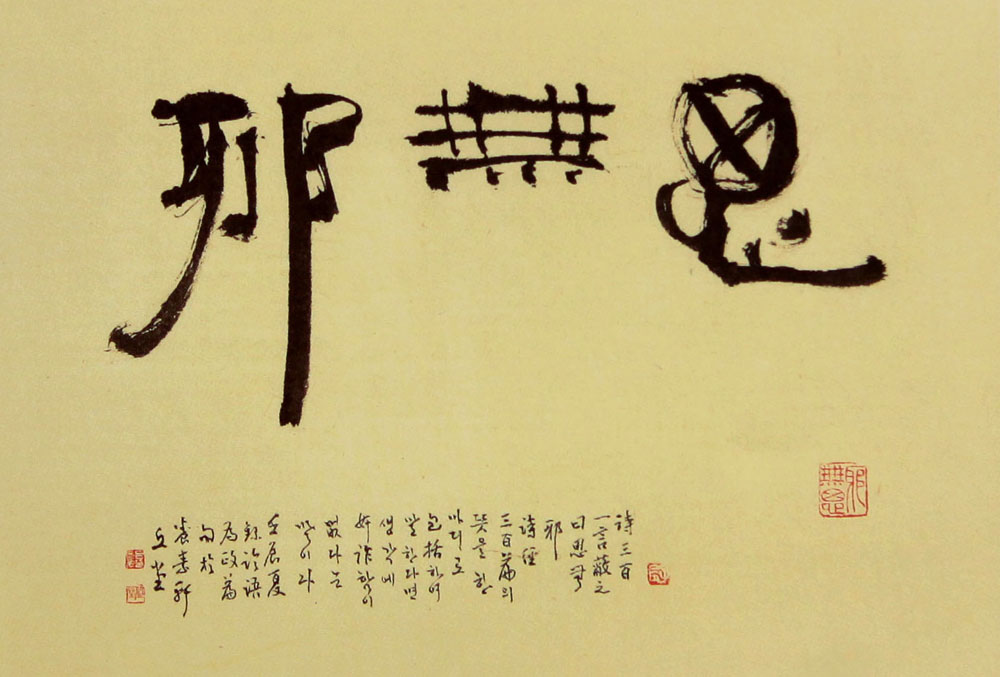 思無邪
詩三百
一言蔽之
曰思無
邪
詩經
三百篇의
뜻을 한
마디로
包括하여
말한다면
생각에
奸詐함이
없다는
말이다
壬辰夏
錄論語
爲政篇
句於
養志軒
丘堂
思無邪